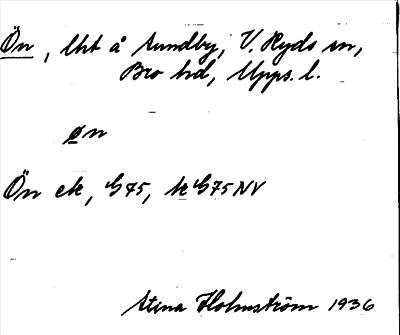 Ön, lht å Sundby, V. Ryds sn,
Bro hd, Upps. l.
øn
Ön ek, G75, k G75NV
Stina Holmström 1936